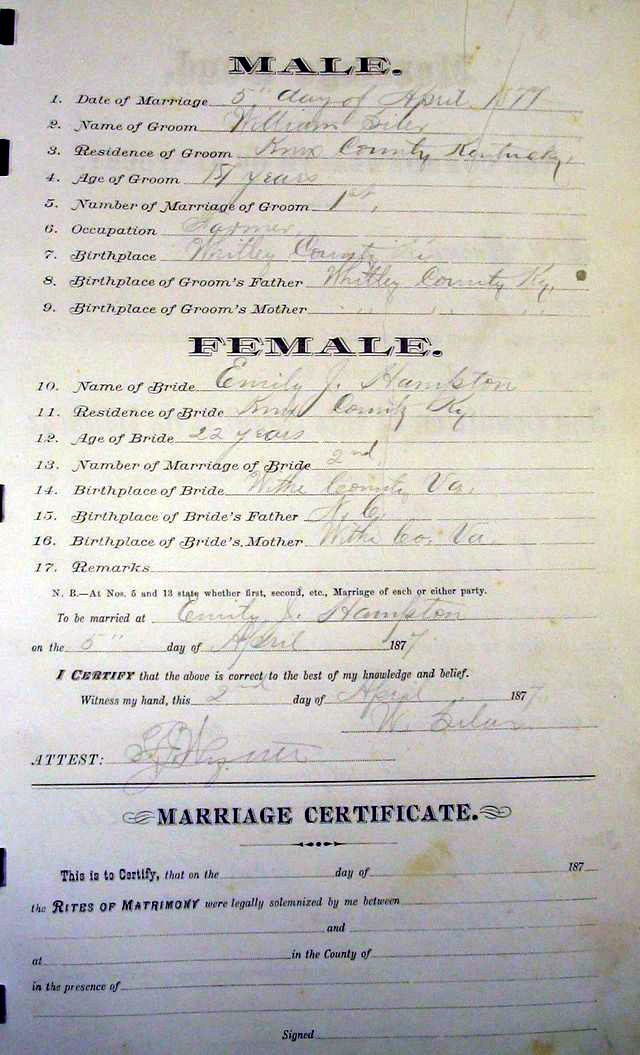 MALE.
1. Date of Marriage 5" day of April 1877
2. Name of Groom William Siler
3. Residence of Groom Knox County Kentucky,
4. Age of Groom years
5. Number of Marriage of Groom 1st,
6. Occupation Farmer,
7. Birthplace Whitley County Ky
8. Birthplace of Groom's Father Whitley County Ky,
9. Birthplace of Groom's Mother " " "
FEMALE.
10. Name of Bride Emily J. Hampton
11. Residence of Bride Knox County Ky
12. Age of Bride 22 years
13. Number of Marriage of Bride 2nd
14. Birthplace of Bride Withe County Va.
15. Birthplace of Bride's Father N.C.
16. Birthplace of Bride's Mother Withe Co. Va
17. Remarks
N. B.—At Nos. 5 and 13 state whether first, second, etc., Marriage of each or either party.
To be married at Emily J. Hampton
on the 5" day of April 1877.
I CERTIFY that the above is correct to the best of my knowledge and belief.
Witness my hand, this 2nd day of April 1877.
W. Siler
ATTEST:
MARRIAGE CERTIFICATE.
This is to Certify, that on the day of 187
the RITES OF MATRIMONY were legally solemnized by me between
and
at in the County of
in the presence of
Signed